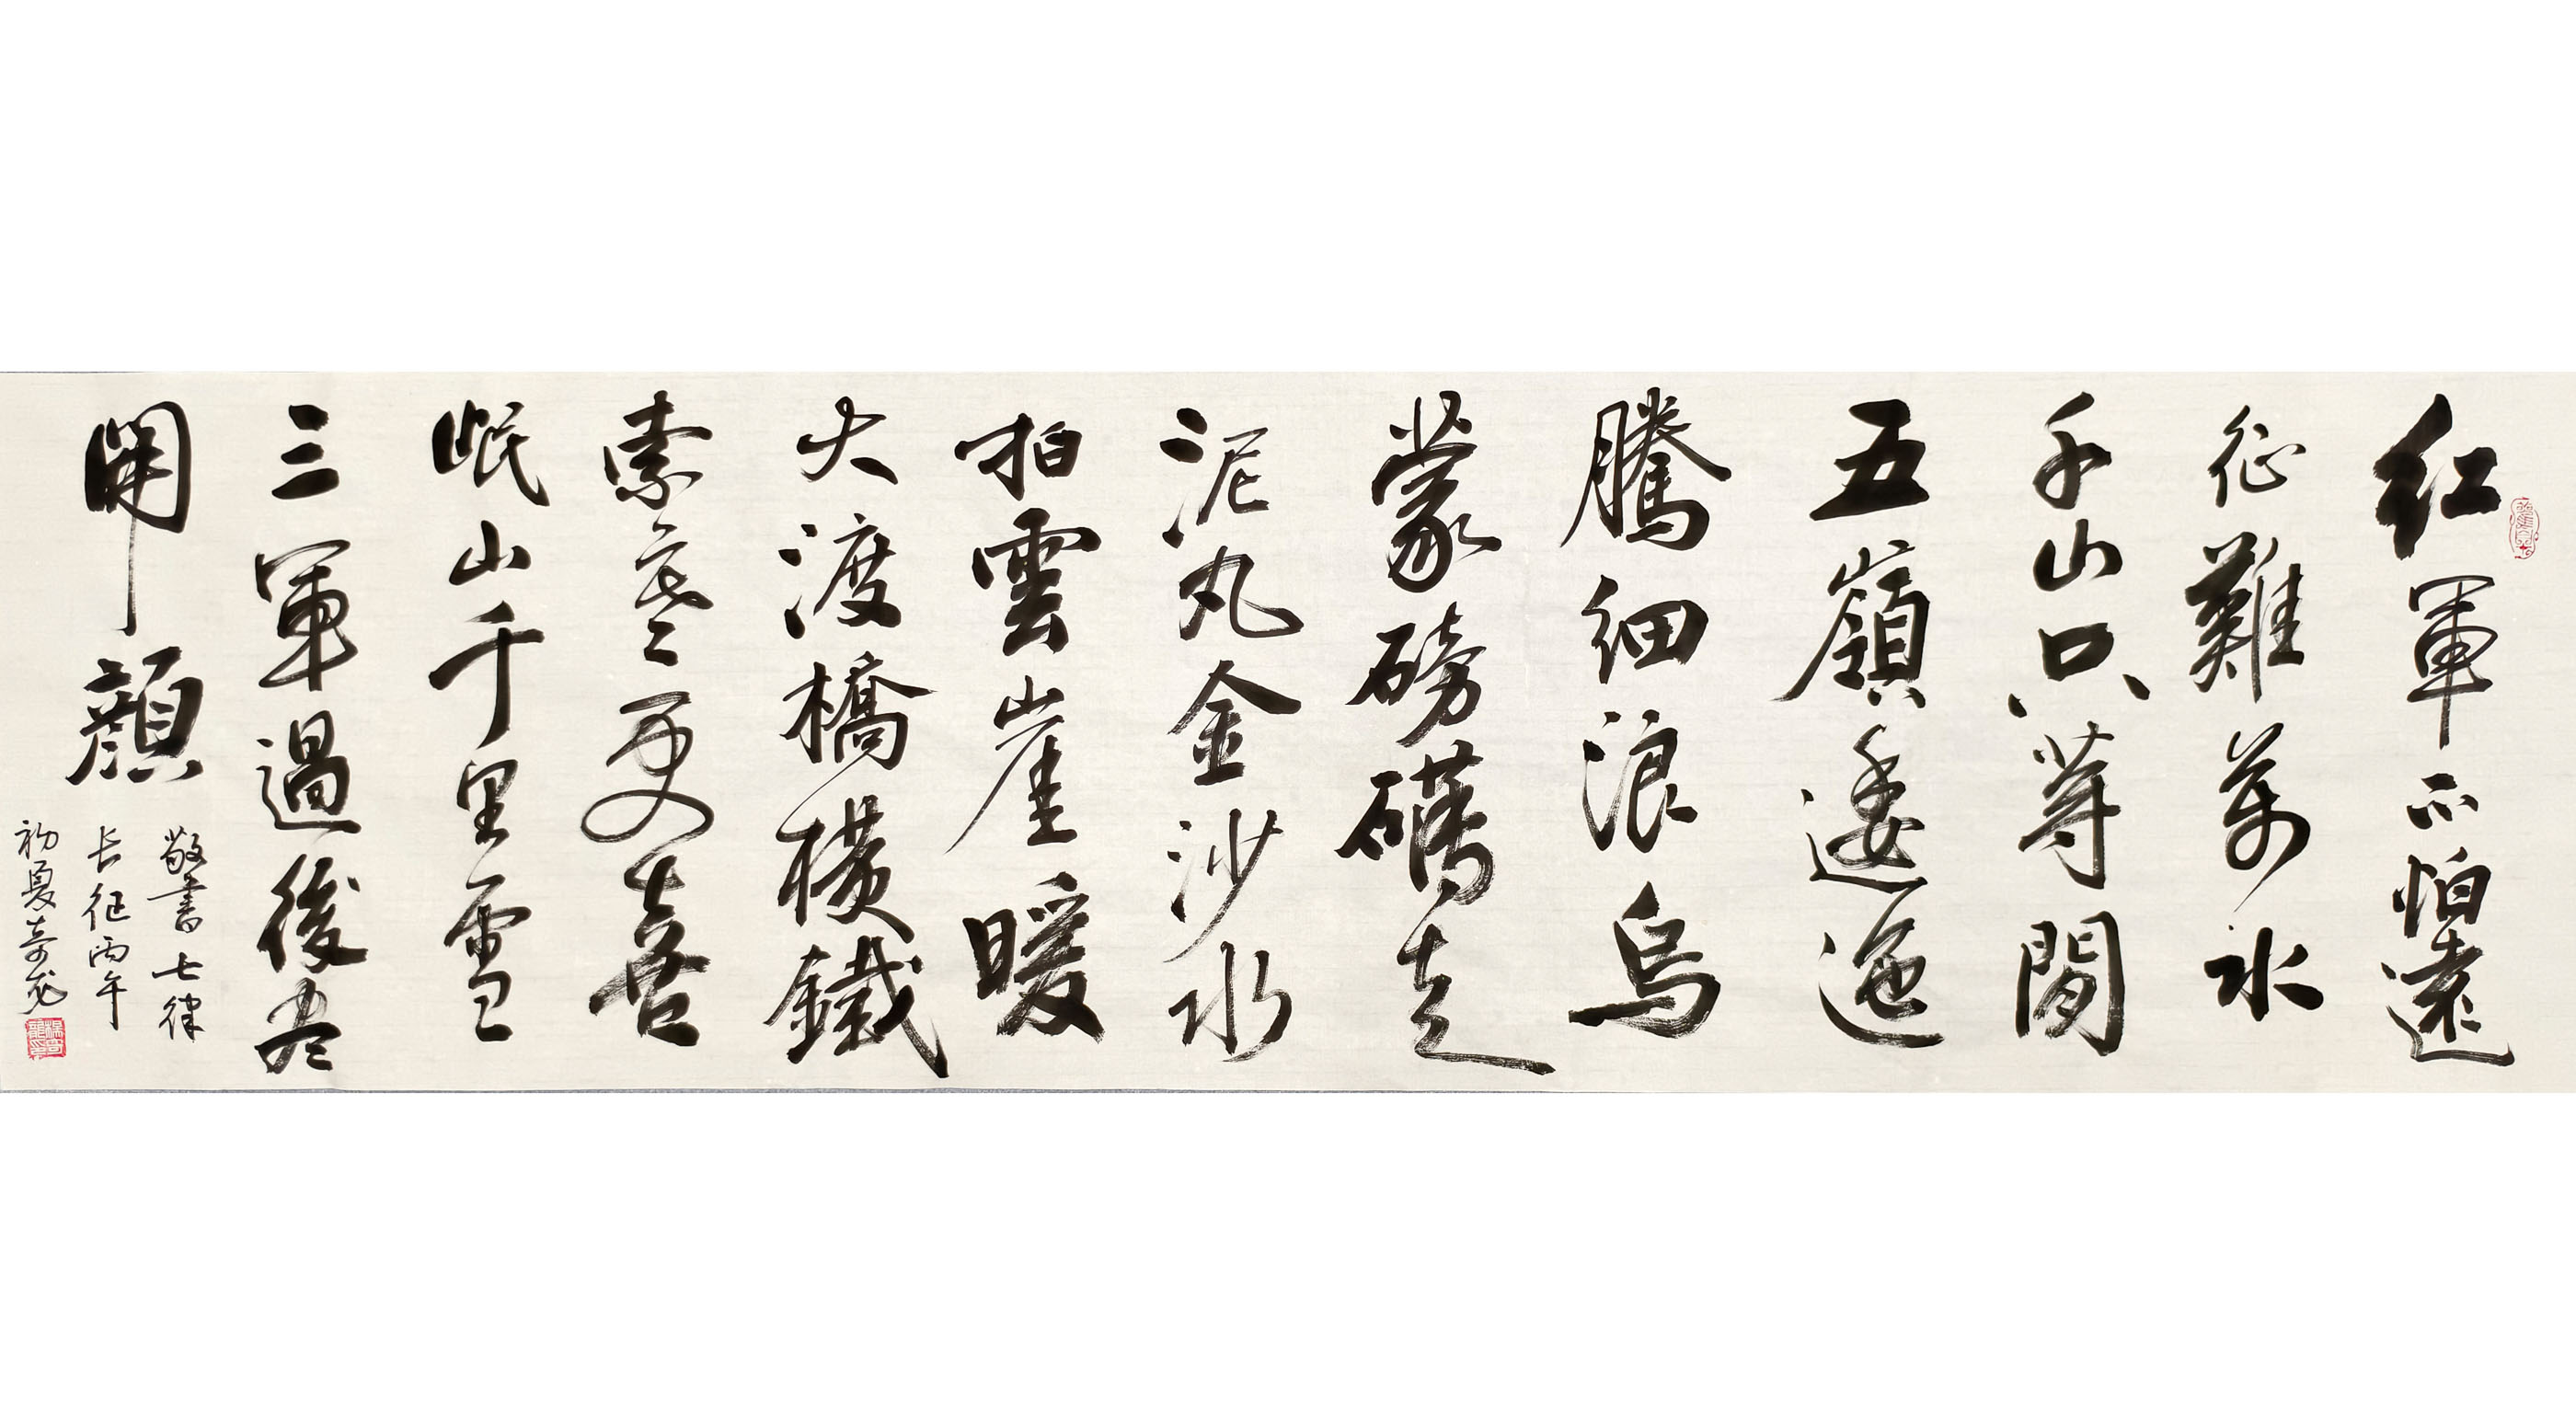 红軍不怕遠
征難萬水
千山只等閒
五嶺逶迤
騰細浪烏
蒙磅礴走
泥丸金沙水
拍雲崖暖
大渡橋橫鐵
索寒更喜
岷山千里雪
三軍過後盡
開顏
敬書七律
长征丙午
初夏奇龙